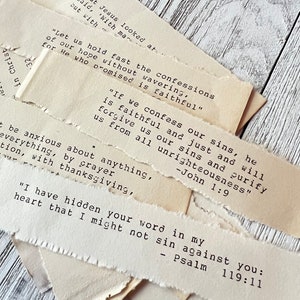 t Jesus looked at
aid, "With ma
but with
"Let us hold fast the confessions
of our hope without wavering,
for He who promised is faithful"
"If we confess our sins, he
is faithful and just and will
forgive us our sins and purify
us from all unrighteousness"
-John 1:9
be anxious about anything,
everything, by prayer
tion, with thanksgiving,
"I have hidden your word in my
heart that I might not sin against you:
- Psalm 119:11